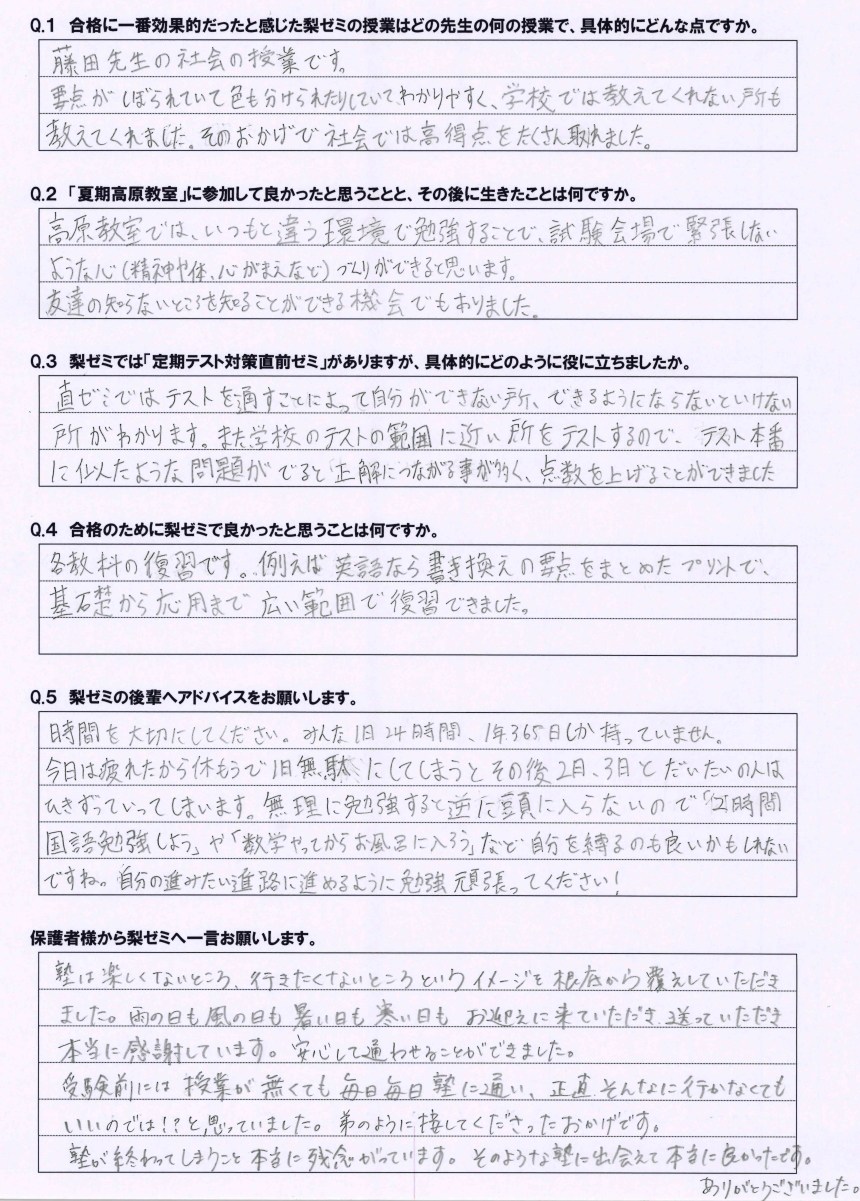 Q.1 合格に一番効果的だったと感じた梨ゼミの授業はどの先生の何の授業で、具体的にどんな点ですか。
藤田先生の社会の授業です。
要点がしぼられていて色も分けられたりしていてわかりやすく、学校では教えてくれない所も
教えてくれました。そのおかげで社会では高得点をたくさん取れました。
Q.2 「夏期高原教室」に参加して良かったと思うことと、その後に生きたことは何ですか。
高原教室では、いつもと違う環境で勉強することで、試験会場で緊張しない
ような心(精神や体、心がまえなど)づくりができると思います。
友達の知らないところを知ることができる機会でもありました。
Q.3 梨ゼミでは「定期テスト対策直前ゼミ」がありますが、具体的にどのように役に立ちましたか。
直ゼミではテストを通すことによって自分ができない所、できるようにならないといけない
所がわかります。また学校のテストの範囲に近い所をテストするので、テスト本番
に似たような問題がでると正解につながる事が多く、点数を上げることができました
Q.4 合格のために梨ゼミで良かったと思うことは何ですか。
各教科の復習です。例えば英語なら書き換えの要点をまとめたプリントで、
基礎から応用まで広い範囲で復習できました。
Q.5 梨ゼミの後輩へアドバイスをお願いします。
時間を大切にしてください。みんな1日24時間、1年365日しか持っていません。
今日は疲れたから休もうで1日無駄にしてしまうとその後2日、3日とだいたいの人は
ひきずっていってしまいます。無理に勉強すると逆に頭に入らないので「2時間
国語勉強しよう」や「数学やってからお風呂に入ろう」など自分を縛るのも良いかもしれない
ですね。自分の進みたい進路に進めるように勉強頑張ってください!
保護者様から梨ゼミへ一言お願いします。
塾は楽しくないところ、行きたくないところというイメージを根底から覆えしていただき
ました。雨の日も風の日も暑い日も寒い日もお迎えに来ていただき、送っていただき
本当に感謝しています。安心して通わせることができました。
受験前には授業が無くても毎日毎日塾に通い、正直そんなに行かなくても
いいのでは!?と思っていました。弟のように接してくださったおかげです。
塾が終わってしまうこと本当に残念がっています。そのような塾に出会えて本当に良かったです。
ありがとうございました。